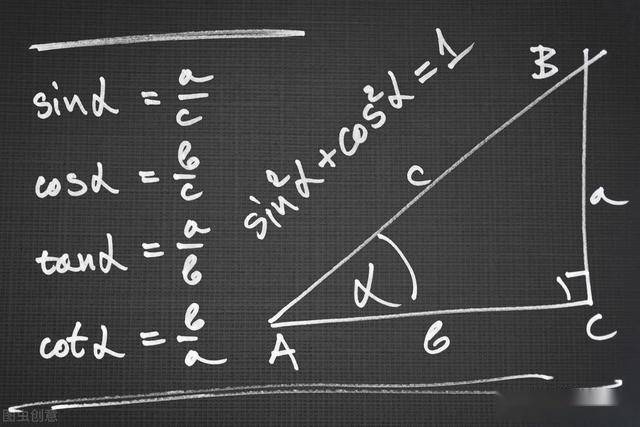 sinα = a/c
cosα = b/c
tanα = a/b
cotα = b/a
sin²α+cos²α=1
B
c
a
α
A
b
C
图虫创意